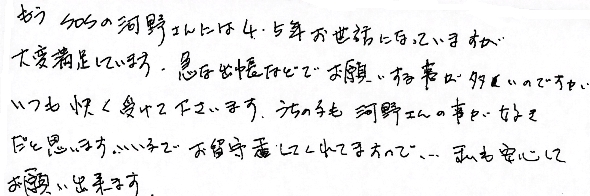 もう SOSの河野さんには4.5年お世話になっていますが
大変満足しています。急な出張などでお願いする事が多いのですが
いつも快く受けて下さいます。うちの子も河野さんの事が好き
だと思います…いい子でお留守番してくれてますので… 私も安心して
お願い出来ます。